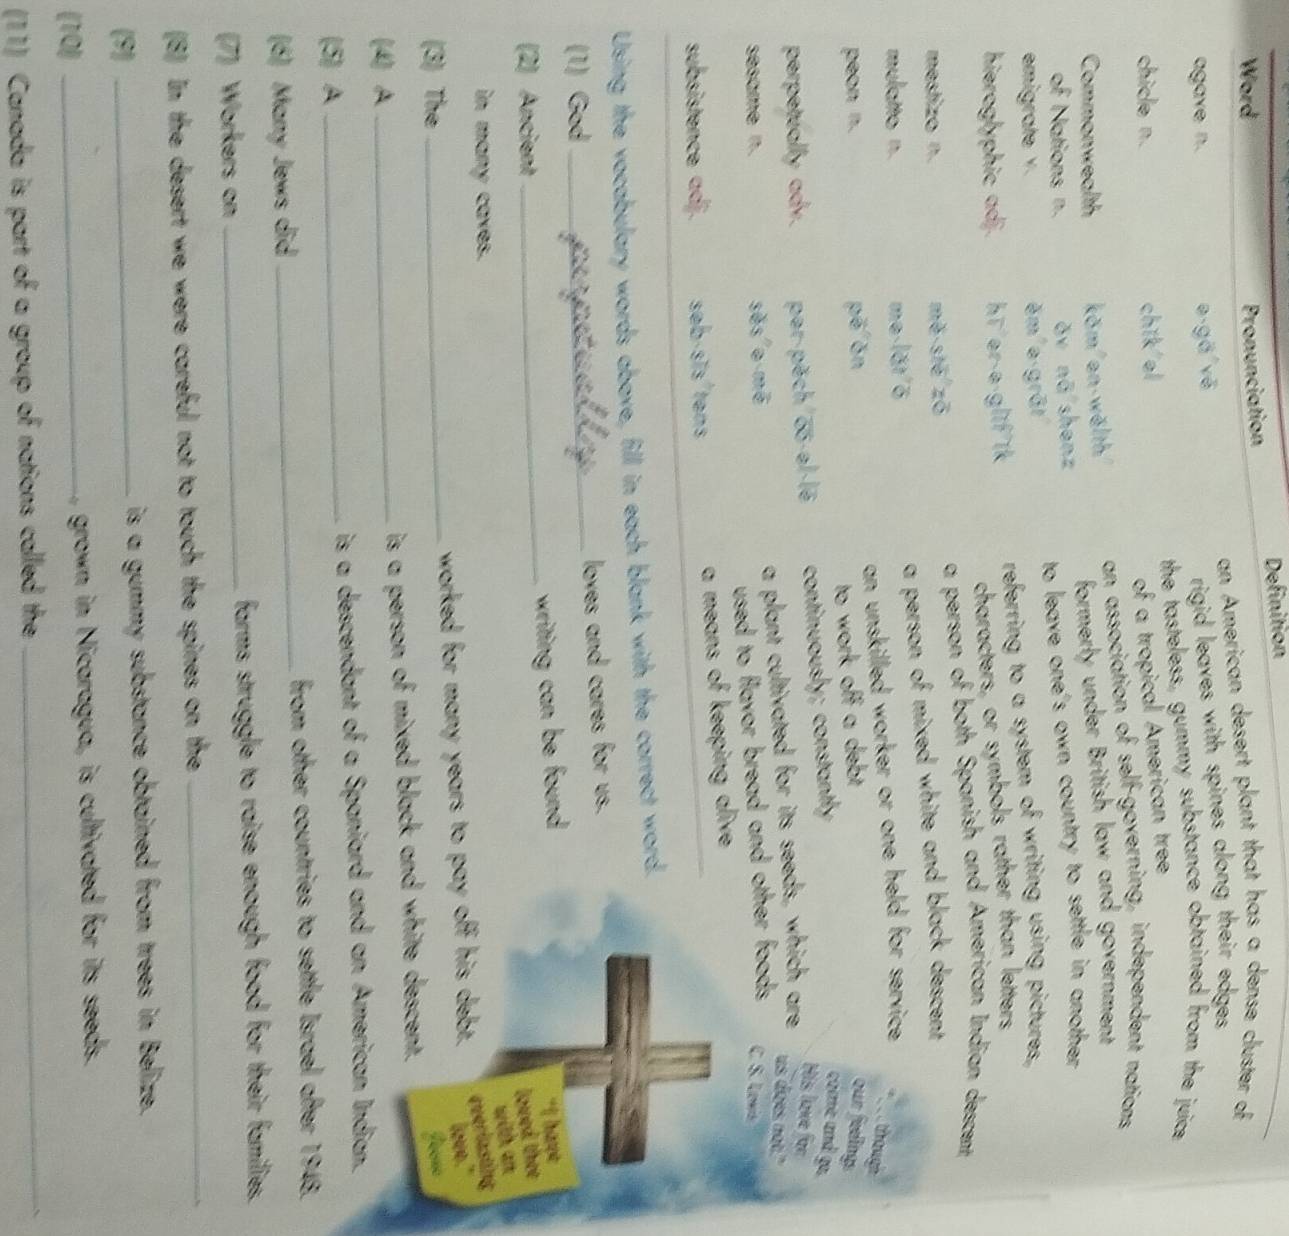 Word Pronunciation Definition
agave n. ə·gä′vē an American desert plant that has a dense cluster of
rigid leaves with spines along their edges
chicle n. chĭk′əl the tasteless, gummy substance obtained from the juice
of a tropical American tree
Commonwealth kŏm′ən·wĕlth′ an association of self-governing, independent nations
of Nations n. ŏv nā′shənz formerly under British law and government
emigrate v. ĕm′ə·grāt′ to leave one's own country to settle in another
hieroglyphic adj. hī′ər·ə·glĭf′ĭk referring to a system of writing using pictures,
characters, or symbols rather than letters
mestizo n. mĕ·stē′zō a person of both Spanish and American Indian descent
mulatto n. mə·lăt′ō a person of mixed white and black descent
peon n. pē′ŏn an unskilled worker or one held for service
to work off a debt
perpetually adv. pər·pĕch′o͞o·əl·lē continuously; constantly
sesame n. sĕs′ə·mē a plant cultivated for its seeds, which are
used to flavor bread and other foods
subsistence adj. səb·sĭs′təns a means of keeping alive
"...though
our feelings
come and go,
His love for
us does not."
C. S. Lewis
Using the vocabulary words above, fill in each blank with the correct word.
(1) God perpetually loves and cares for us.
(2) Ancient writing can be found
in many caves.
(3) The worked for many years to pay off his debt.
(4) A is a person of mixed black and white descent.
(5) A is a descendant of a Spaniard and an American Indian.
(6) Many Jews did from other countries to settle Israel after 1948.
(7) Workers on farms struggle to raise enough food for their families.
(8) In the desert we were careful not to touch the spines on the .
(9) is a gummy substance obtained from trees in Belize.
(10) , grown in Nicaragua, is cultivated for its seeds.
(11) Canada is part of a group of nations called the .
"I have
loved thee
with an
everlasting
love."
Jesus